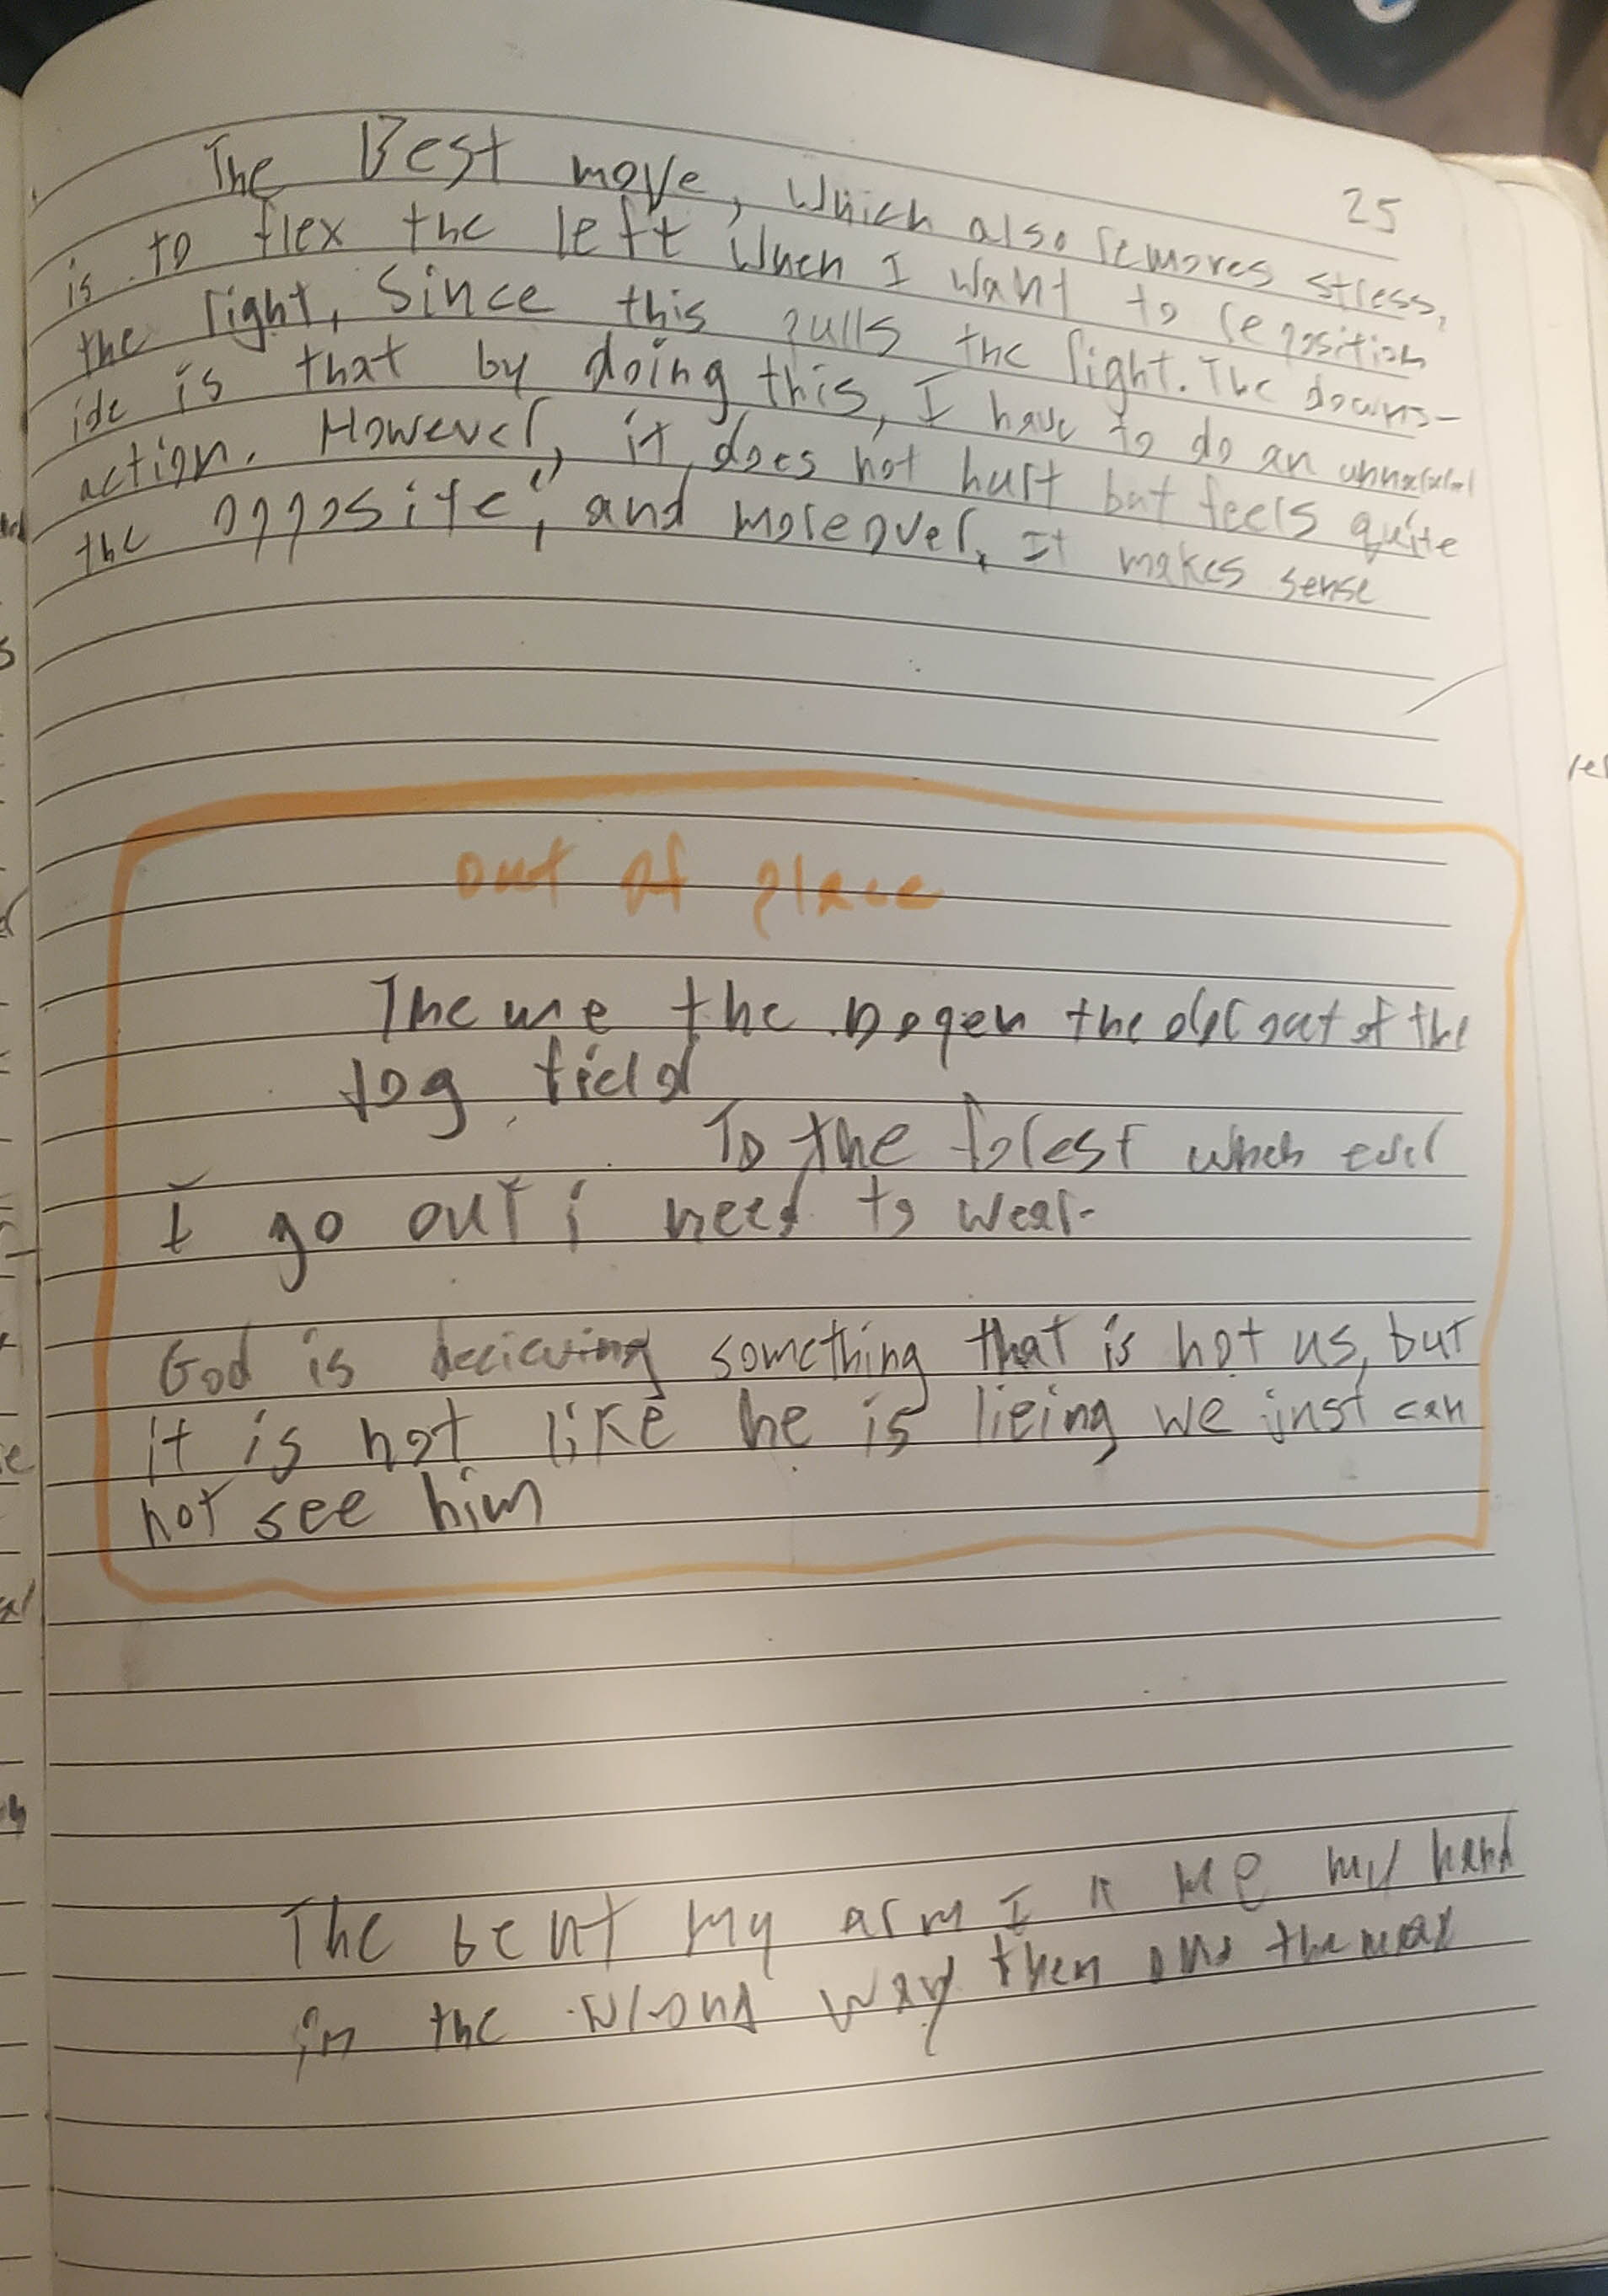 25
The Best move, which also removes stress,
is to flex the left when I want to reposition
the right, since this pulls the right. The downs-
ide is that by doing this, I have to do an unnatural
action. However, it does not hurt but feels quite
the opposite", and moreover, it makes sense
out of place
The me the the out of the
fog field
To the forest when ever
I go out i need to wear-
God is decieving something that is not us, but
it is not like he is lieing we just can
not see him
The bent my arm I me my hand
in the wrong way then